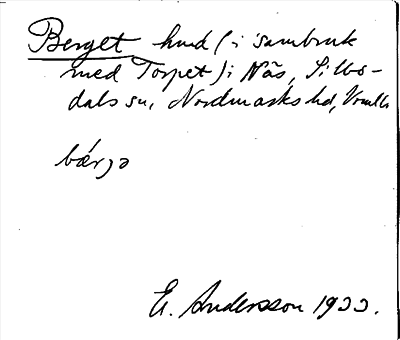 Berget hmd (i sambruk
med Torpet) i Näs, Silbo-
dals sn, Nordmarks hd, Vrmlds
bærjə
E. Andersson 1933.